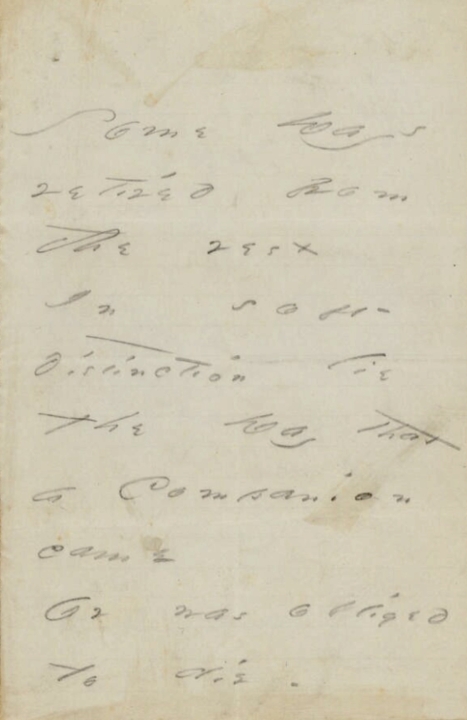 Some Days
retired from
the rest
In soft
distinction lie
The Day that
a Companion
came
Or was obliged
to die.